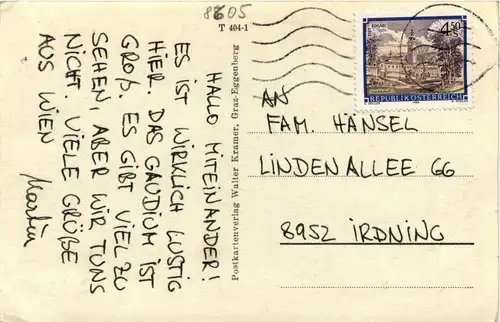 8605
T 404-1
HALLO MITEINANDER!
ES IST WIRKLICH LUSTIG
HIER. DAS GAUDIUM IST
GROß. ES GIBT VIEL ZU
SEHEN, ABER WIR TUNS
NICHT. VIELE GRÜßE
AUS WIEN
Martin
Postkartenverlag Walter Kramer, Graz-Eggenberg
4.50
REPUBLIK ÖSTERREICH
AN
FAM. HÄNSEL
LINDENALLEE 66
8952 IRDNING